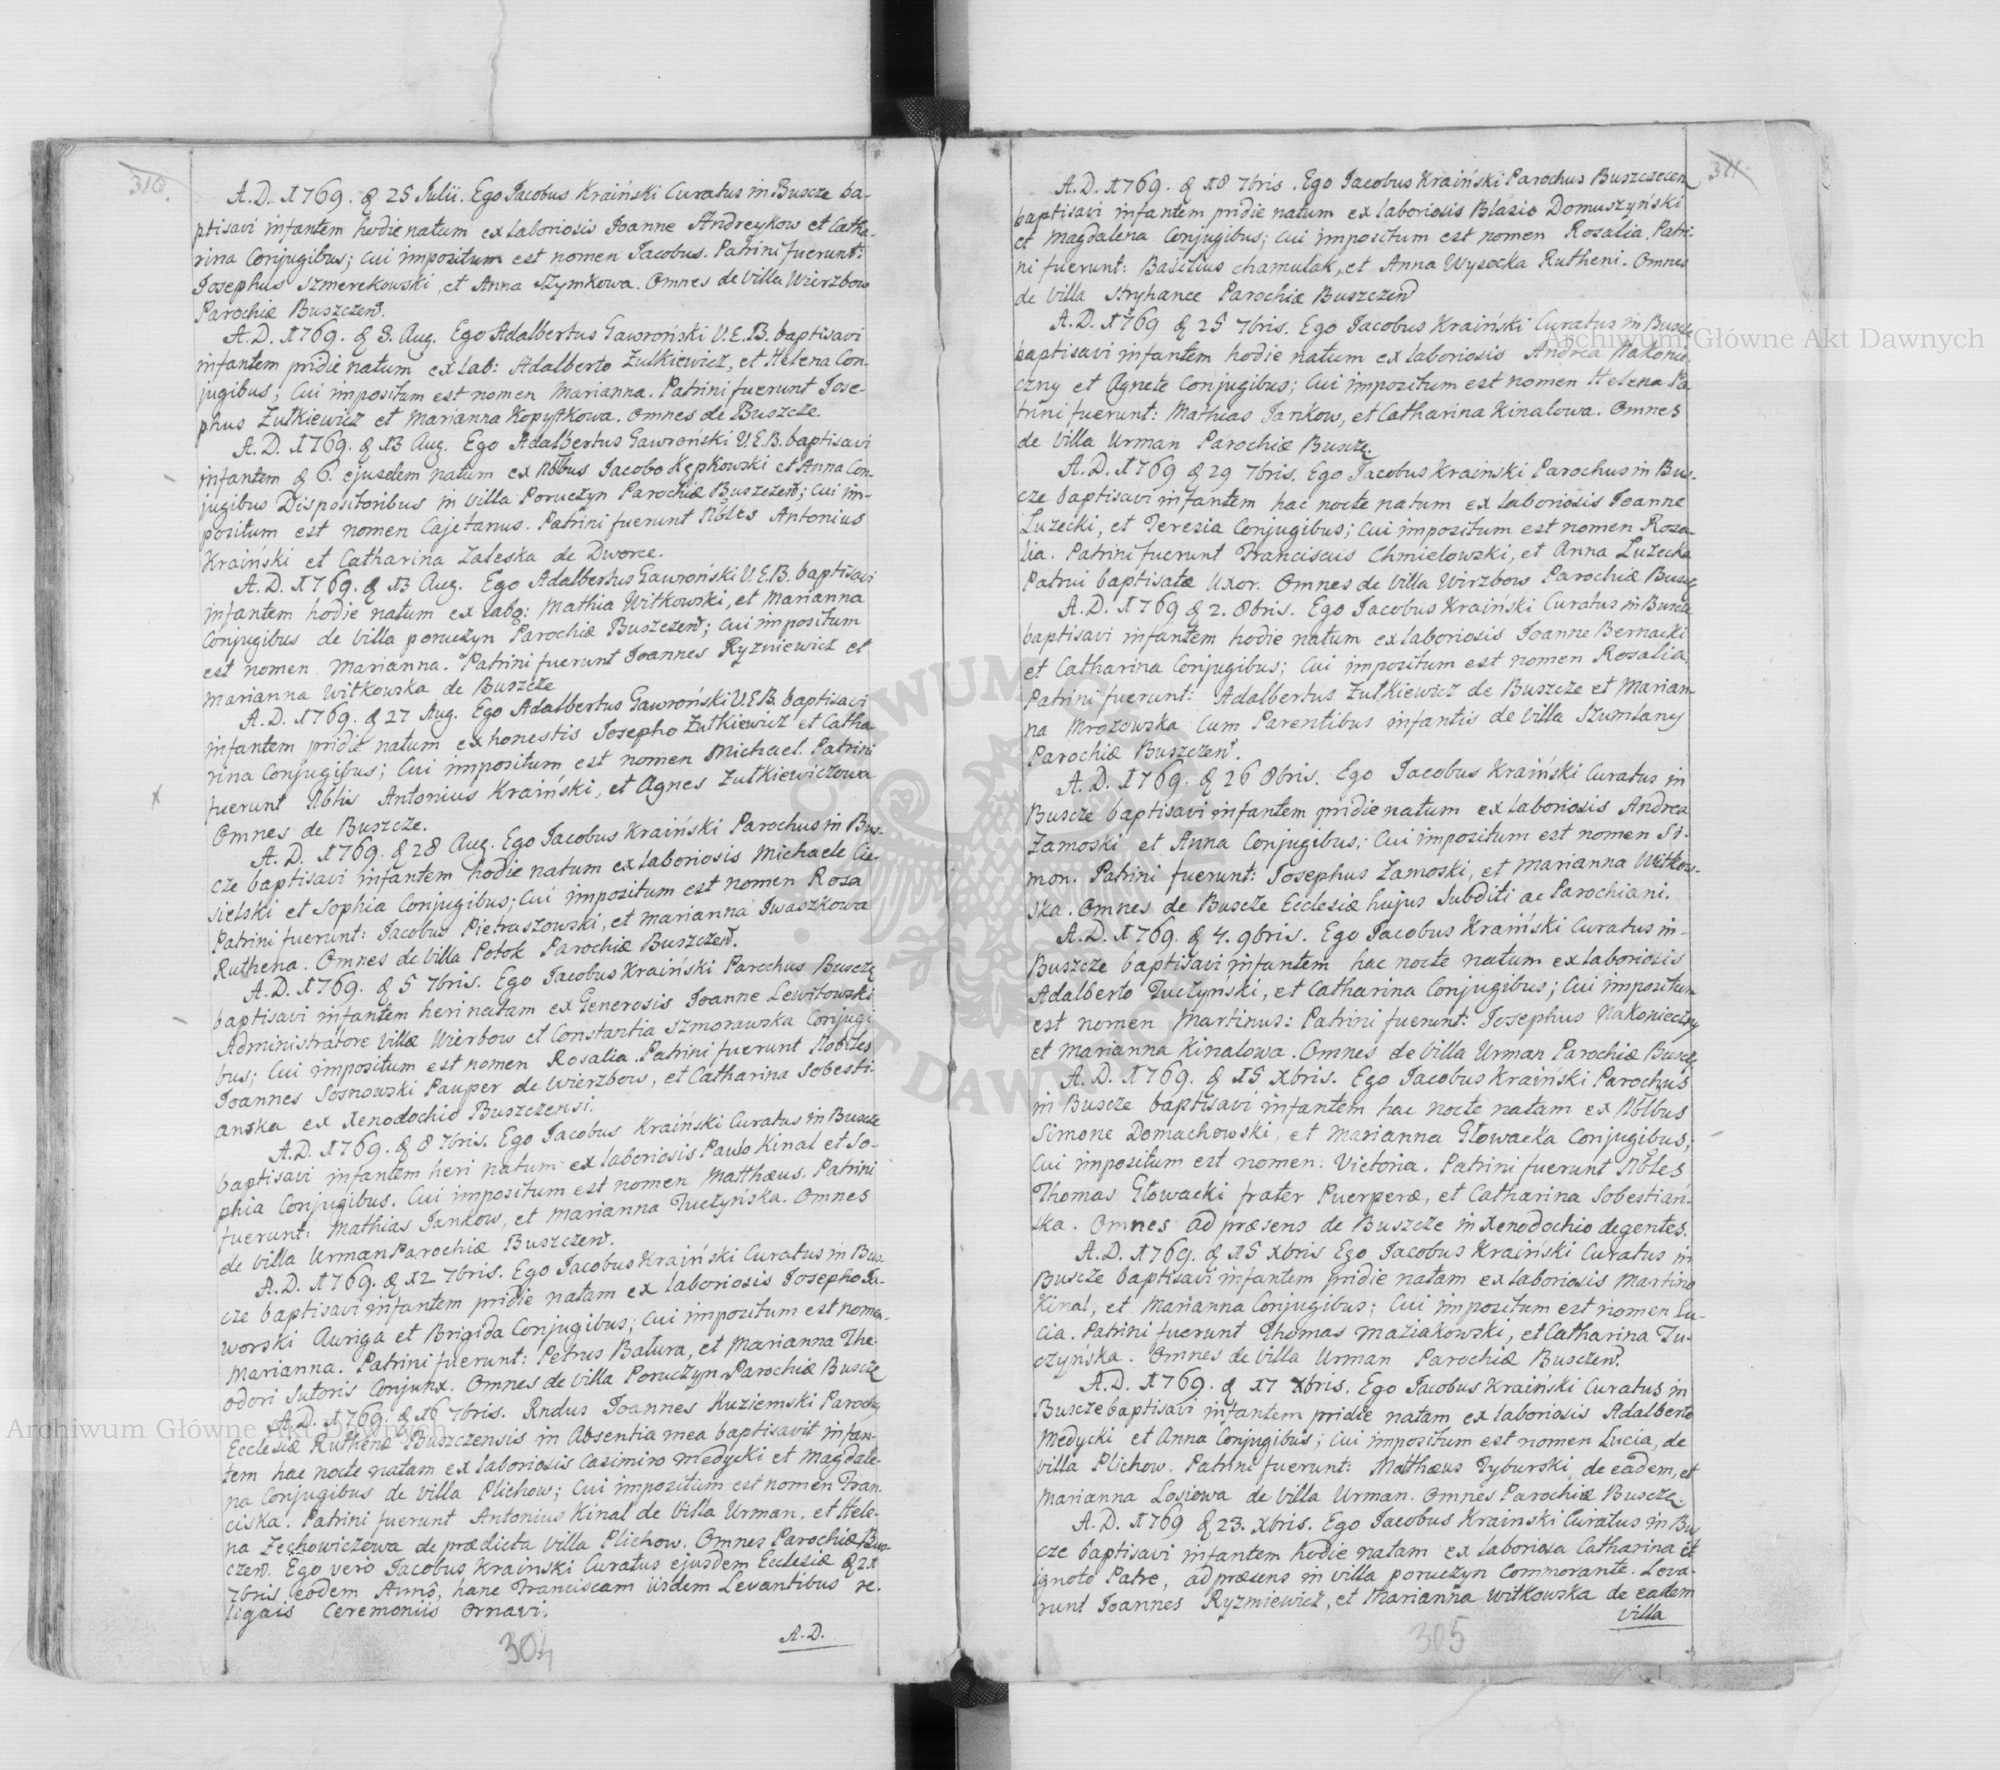 310.
A.D. 1769. d 25 Julii. Ego Jacobus Kraiński Curatus in Buscze ba-
ptisavi infantem hodie natum ex laboriosis Joanne Andreykow et Catha-
rina Conjugibus; cui impositum est nomen Jacobus. Patrini fuerunt:
Josephus Szmerekowski, et Anna Szymkowa. Omnes de Villa Wierzbow
Parochiæ Buszczen.
A.D. 1769. d 3. Aug. Ego Adalbertus Gawroński V.E.B. baptisavi
infantem pridie natum ex Lab: Adalberto Żułkiewicz, et Helena Con-
jugibus; Cui impositum est nomen Marianna. Patrini fuerunt Jose-
phus Żułkiewicz et Marianna Kopystkowa. Omnes de Buszcze.
A.D. 1769. d 13 Aug. Ego Adalbertus Gawroński V.E.B. baptisavi
infantem d 6. ejusdem natum ex Nblbus Jacobo Kępkowski et Anna Con-
jugibus Dispositoribus in Villa Poruczyn Parochiæ Buszczen; Cui im-
positum est nomen Cajetanus. Patrini fuerunt Nbles Antonius
Kraiński et Catharina Zaleska de Dworce.
A.D. 1769. d 13 Aug. Ego Adalbertus Gawroński V.E.B. baptisavi
infantem hodie natum ex labq: Mathia Witkowski, et Marianna
Conjugibus de Villa poruczyn Parochiæ Buszczen; Cui impositum
est nomen Marianna. Patrini fuerunt Joannes Ryzniewicz et
Marianna Witkowska de Buszcze
A.D. 1769. d 27 Aug. Ego Adalbertus Gawroński V.E.B. baptisavi
infantem pridie natum ex honestis Josepho Żułkiewicz et Catha
rina Conjugibus; Cui impositum est nomen Michael. Patrini
fuerunt Nblis Antonius Kraiński, et Agnes Żułkiewiczowa
Omnes de Buszcze.
A.D. 1769. d 28 Aug. Ego Jacobus Kraiński Parochus in Bus-
cze baptisavi infantem hodie natum ex laboriosis Michaele Cie-
sielski et Sophia Conjugibus; Cui impositum est nomen Rosa
Patrini fuerunt: Jacobus Pietraszowski, et Marianna Iwaszkowa
Ruthena. Omnes de Villa Potok Parochiæ Buszczen.
A.D. 1769. d 5 7bris. Ego Jacobus Kraiński Parochus Buscze
baptisavi infantem heri natam ex Generosis Joanne Lewitowski
Administratore Villæ Wierbow et Constantia Szmorawska Conjugi
bus; Cui impositum est nomen Rosalia. Patrini fuerunt Nobiles
Joannes Sosnowski Pauper de Wierzbow, et Catharina Sobesti-
anska ex Xenodochio Buszczensi.
A.D. 1769. d 8 7bris. Ego Jacobus Kraiński Curatus in Buscze
baptisavi infantem heri natum ex laboriosis Paulo Kinal et So-
phia Conjugibus. Cui impositum est nomen Matthæus. Patrini
fuerunt: Mathias Jankow, et Marianna Tuczyńska. Omnes
de Villa Urman Parochiæ Buszczen.
A.D. 1769. d 12 7bris. Ego Jacobus Kraiński Curatus in Bus-
cze baptisavi infantem pridie natam ex laboriosis Josepho Ja-
worski Auriga et Brigida Conjugibus; Cui impositum est nomen
Marianna. Patrini fuerunt: Petrus Batura, et Marianna The-
odori Sutoris Conjunx. Omnes de Villa Poruczyn Parochiæ Buscze
A.D. 1769. d 16 7bris. Rndus Joannes Kuziemski Parochus
Ecclesiæ Ruthenæ Buszczensis in Absentia mea baptisavit infan-
tem hac nocte natam ex laboriosis Casimiro Medycki et Magdale-
na Conjugibus de Villa Plichow; Cui impositum est nomen Fran-
ciska. Patrini fuerunt Antonius Kinal de Villa Urman, et Hele-
na Zechowiczowa de prædicta Villa Plichow. Omnes Parochiæ Bus-
czen. Ego verò Jacobus Kraiński Curatus ejusdem Ecclesiæ d 21
7bris eodem Annô, hanc Franciscam iisdem Levantibus re-
ligais Ceremoniis ornavi.
A.D.
304
311.
A.D. 1769. d 18 7bris. Ego Jacobus Kraiński Parochus Buszczecen
baptisavi infantem pridie natum ex laboriosis Blasio Domuszyński
et Magdalena Conjugibus; Cui impositum est nomen Rosalia. Patri-
ni fuerunt: Basilius Chamulak, et Anna Wysocka Rutheni. Omnes
de Villa Stryhance Parochiæ Buszczen
A.D. 1769 d 25 7bris. Ego Jacobus Kraiński Curatus in Buscze
baptisavi infantem hodie natum ex laboriosis Andrea Nakonie-
czny et Agnete Conjugibus; Cui impositum est nomen Helena. Pa-
trini fuerunt: Mathias Jankow, et Catharina Kinalowa. Omnes
de Villa Urman Parochiæ Buscze.
A.D. 1769 d 29 7bris. Ego Jacobus Kraiński Parochus in Bus-
cze baptisavi infantem hac nocte natum ex laboriosis Joanne
Luzecki, et Teresia Conjugibus; Cui impositum est nomen Rosa-
lia. Patrini fuerunt Franciscus Chmielowski, et Anna Luzecka
Patrui baptisatæ Uxor. Omnes de Villa Wirzbow Parochiæ Buscze
A.D. 1769 d 2. 8bris. Ego Jacobus Kraiński Curatus in Buscze
baptisavi infantem hodie natum ex laboriosis Joanne Bernacki
et Catharina Conjugibus; Cui impositum est nomen Rosalia,
Patrini fuerunt: Adalbertus Żułkiewicz de Buszcze et Marian-
na Mrozowska Cum Parentibus infantis de Villa Szumlany
Parochiæ Buszczen.
A.D. 1769. d 26 8bris. Ego Jacobus Kraiński Curatus in
Buscze baptisavi infantem pridie natum ex laboriosis Andrea
Zamoski et Anna Conjugibus; Cui impositum est nomen Si-
mon. Patrini fuerunt: Josephus Zamoski, et Marianna Witkow-
ska. Omnes de Buscze Ecclesiæ hujus Subditi ac Parochiani.
A.D. 1769. d 4. 9bris. Ego Jacobus Kraiński Curatus in-
Buszcze baptisavi infantem hac nocte natum ex laboriosis
Adalberto Tuczyński, et Catharina Conjugibus; Cui impositum
est nomen Martinus: Patrini fuerunt: Josephus Nakonieczny
et Marianna Kinalowa. Omnes de Villa Urman Parochiæ Buscze
A.D. 1769. d 15 Xbris. Ego Jacobus Kraiński Parochus
in Buscze baptisavi infantem hac nocte natam ex Nblbus
Simone Domachowski, et Marianna Głowacka Conjugibus;
Cui impositum est nomen: Victoria. Patrini fuerunt Nbles
Thomas Głowacki frater Puerperæ, et Catharina Sobestiań-
ska. Omnes ad præsens de Buscze in Xenodochio degentes.
A.D. 1769. d 15 Xbris Ego Jacobus Kraiński Curatus in
Buscze baptisavi infantem pridie natam ex laboriosis Martino
Kinal, et Marianna Conjugibus; Cui impositum est nomen Lu-
cia. Patrini fuerunt Thomas Maziakowski, et Catharina Tu-
czyńska. Omnes de Villa Urman Parochiæ Busczen.
A.D. 1769. d 17 Xbris. Ego Jacobus Kraiński Curatus in
Buscze baptisavi infantem pridie natam ex laboriosis Adalberto
Medycki et Anna Conjugibus; Cui impositum est nomen Lucia, de
Villa Plichow. Patrini fuerunt: Matthæus Tyburski de eadem, et
Marianna Losiowa de Villa Urman. Omnes Parochiæ Buscze.
A.D. 1769 d 23. Xbris. Ego Jacobus Krainski Curatus in Bus
cze baptisavi infantem hodie natam ex laboriosa Catharina et
ignoto Patre, ad præsens in Villa poruczyn Commorante. Leva-
runt Joannes Ryzniewicz, et Marianna Witkowska de eadem
Villa
305
Archiwum Główne Akt Dawnych
Archiwum Główne Akt Dawnych